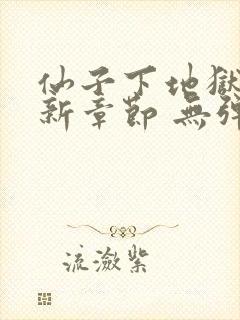 仙子下地獄
新章節 無彈
流瀲紫